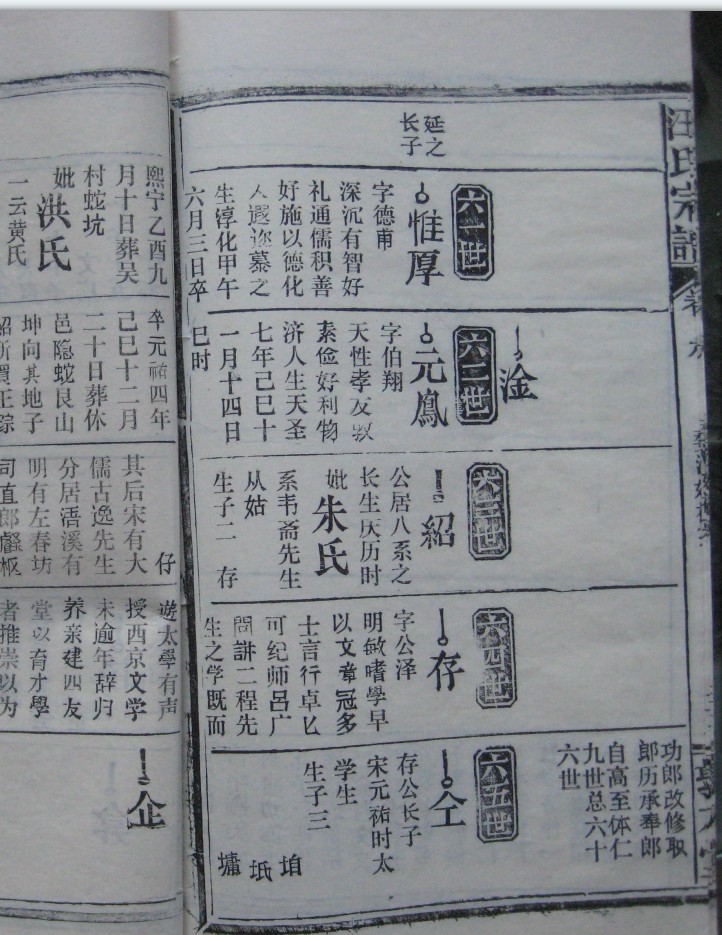 汪氏宗譜
延之
长子
六一世
惟厚
字德甫
深沉有智好
礼通儒积善
好施以德化
人遐迩慕之
生淳化甲午
六月三日卒
熙宁乙酉九
月十日葬吴
村蛇坑
妣洪氏
一云黄氏
淦
六二世
元鳳
字伯翔
天性孝友
素俭好利物
济人生天圣
七年己巳十
一月十四日
巳时
卒元祐四年
己巳十二月
二十日葬休
邑隐蛇艮山
坤向其地子
紹所買
六三世
紹
公居八系之
长生庆历时
妣朱氏
系韦斋先生
从姑
生子二 存
仔
其后宋有大
儒古逸先生
分居浯溪有
明有左春坊
司直郎
六四世
存
字公泽
明敏嗜學早
以文章冠多
士言行卓匕
可纪师吕广
問講二程先
生之学既而
遊太學有声
授西京文学
未逾年辞归
养亲建四友
堂以育才學
者推崇以为
功郎改修取
郎历承奉郎
自高至体仁
九世总六十
六世
六五世
仝
存公长子
宋元祐时太
学生
生子三
垍
坻
墉
企